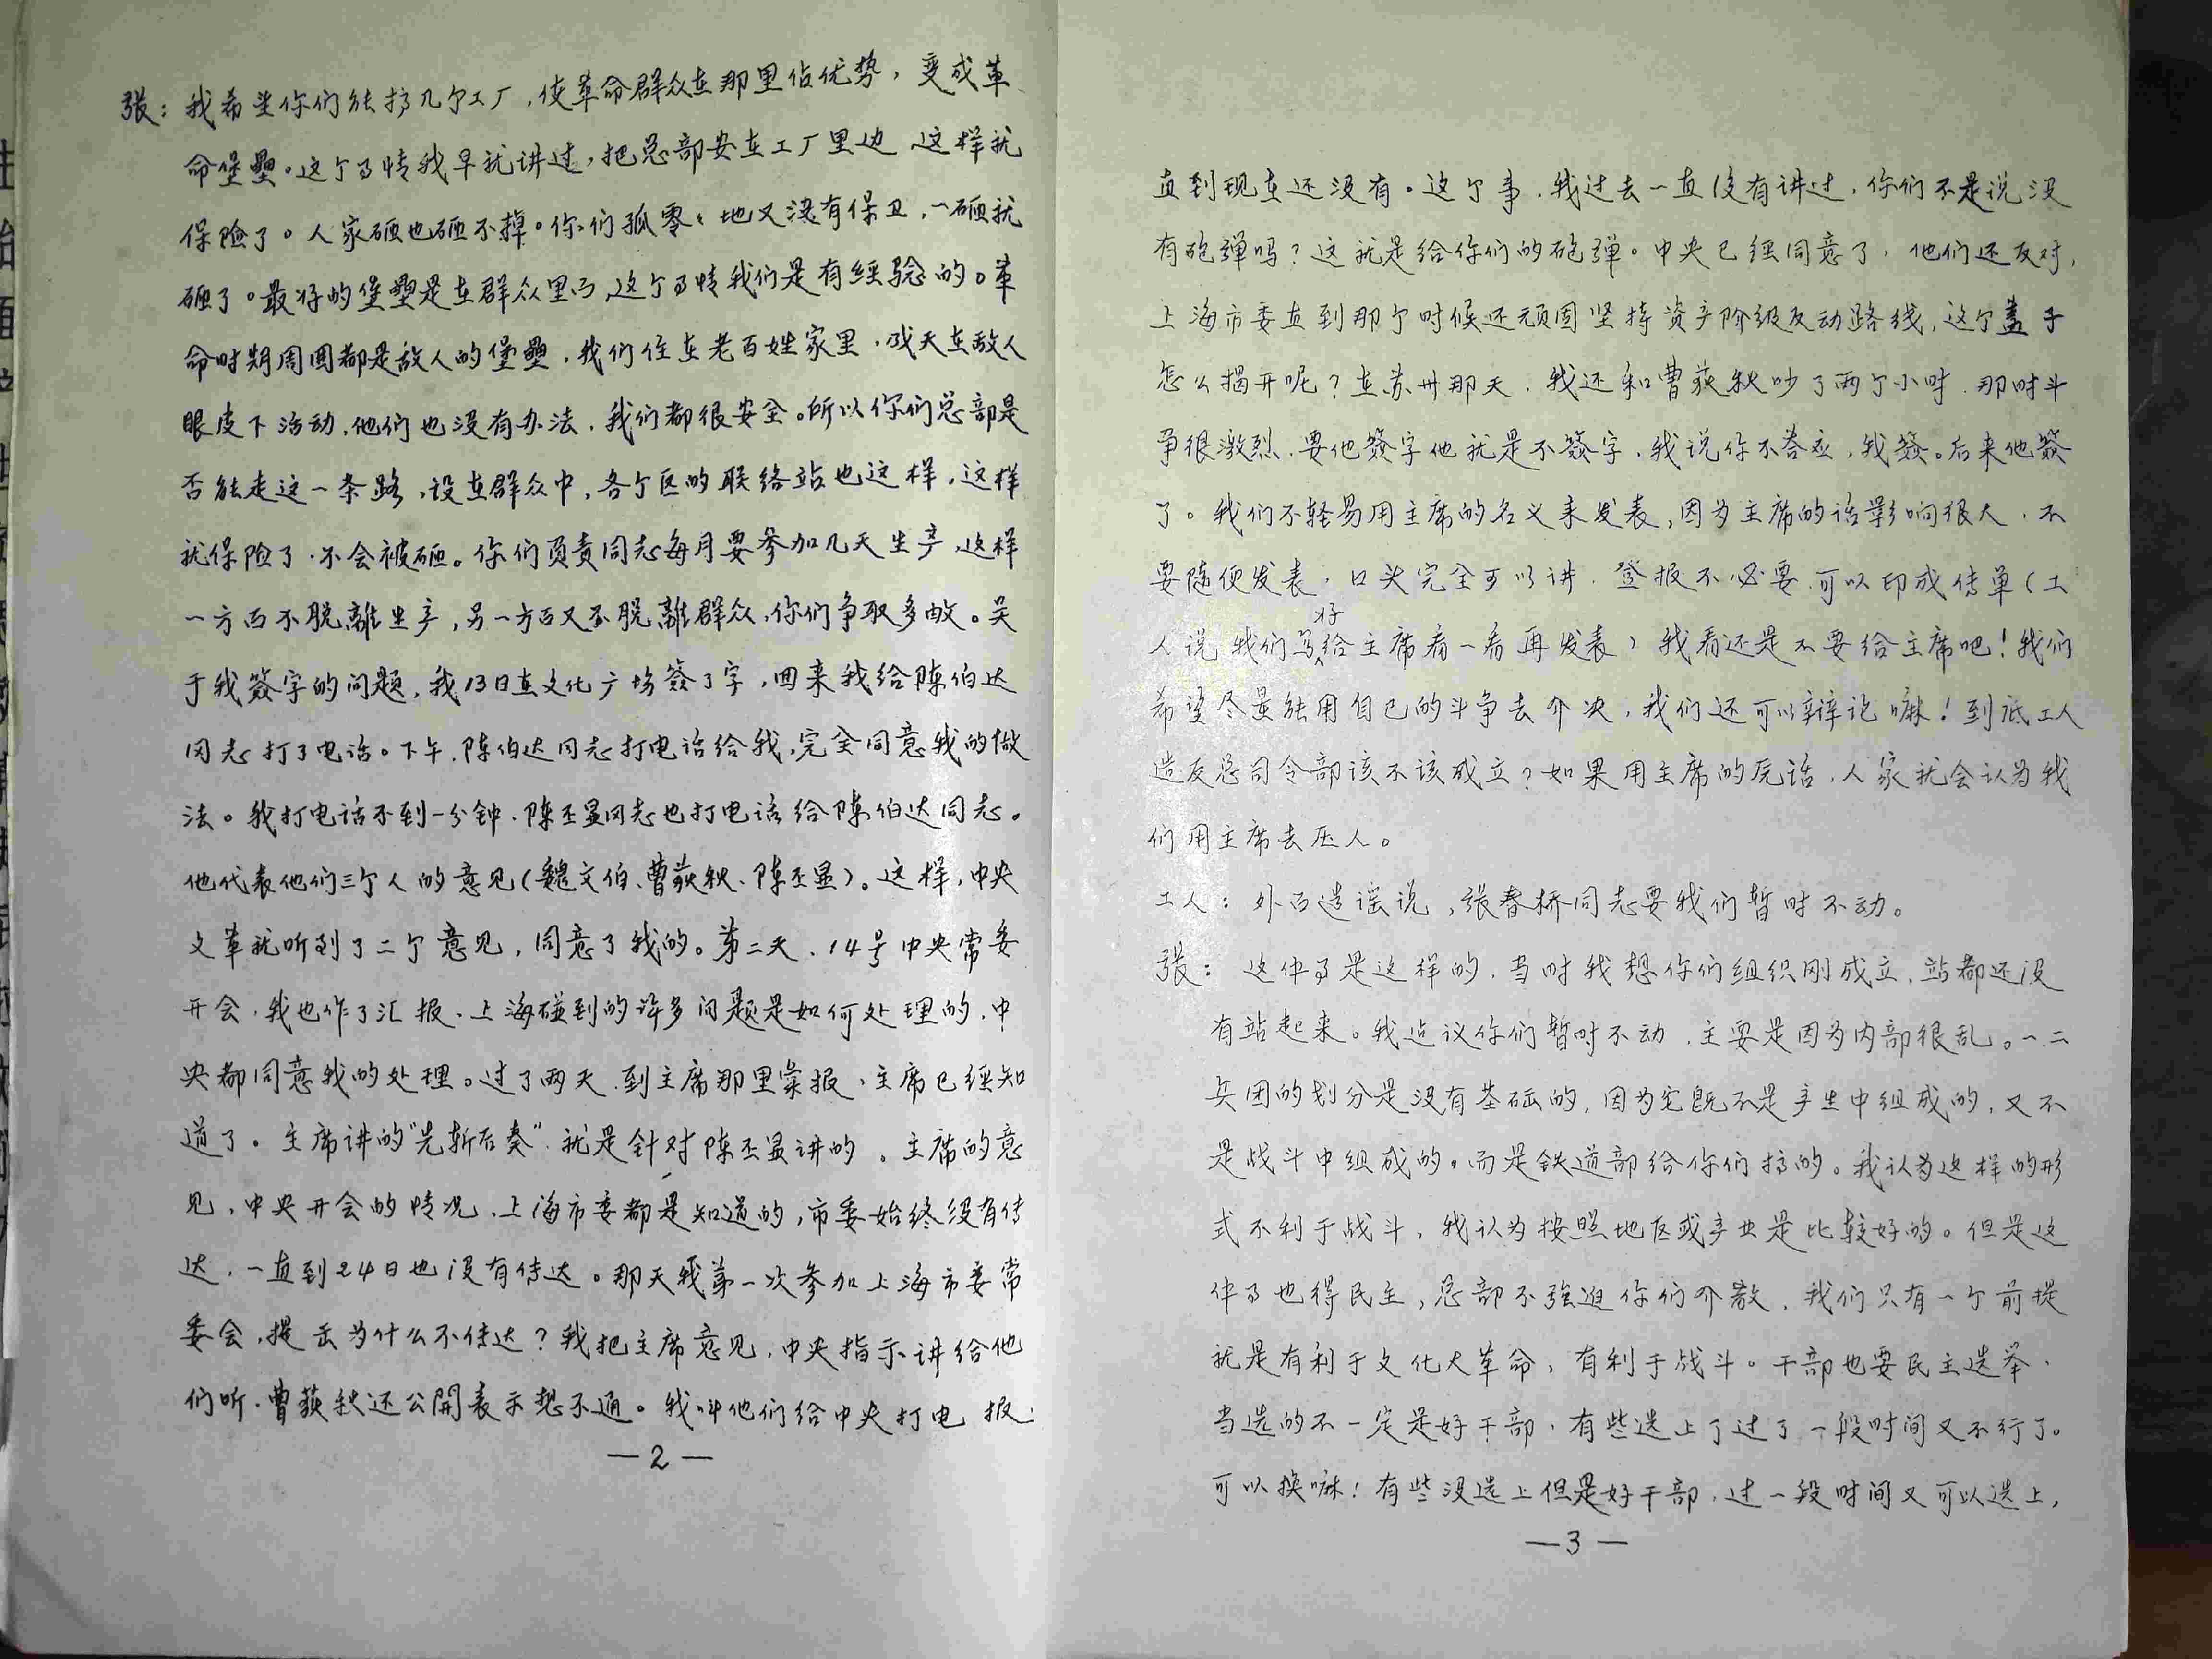 张：我希望你们能搞几个工厂，使革命群众在那里佔优势，变成革
命堡壘。这个事情我早就讲过，把总部安在工厂里边，这样就
保险了。人家砸也砸不掉。你们孤零々地又没有保卫，一砸就
砸了。最好的堡壘是在群众里面，这个事情我们是有经验的。革
命时期周围都是敌人的堡壘，我们住在老百姓家里，成天在敌人
眼皮下活动，他们也没有办法，我们都很安全。所以你们总部是
否能走这一条路，设在群众中，各个区的联络站也这样，这样
就保险了，不会被砸。你们负责同志每月要参加几天生产，这样
一方面不脱離生产，另一方面又不脱離群众，你们争取多做。关
于我簽字的问题，我13日在文化广场簽了字，回来我给陈伯达
同志打了电话。下午，陈伯达同志打电话给我，完全同意我的做
法。我打电话不到一分钟，陈丕显同志也打电话给陈伯达同志。
他代表他们三个人的意见（魏文伯、曹荻秋、陈丕显）。这样，中央
文革就听到了二个意见，同意了我的。第二天，14号中央常委
开会，我也作了汇报，上海碰到的许多问题是如何处理的，中
央都同意我的处理。过了两天，到主席那里彙报，主席已经知
道了。主席讲的“先斩后奏”，就是针对陈丕显讲的。主席的意
见，中央开会的情况，上海市委都是知道的，市委始终没有传
达，一直到24日也没有传达。那天我第一次参加上海市委常
委会，提出为什么不传达？我把主席意见，中央指示讲给他
们听，曹荻秋还公開表示想不通。我叫他们给中央打电报，
—2—
直到现在还没有。这个事，我过去一直没有讲过，你们不是说没
有砲弹吗？这就是给你们的砲弹。中央已经同意了，他们还反对，
上海市委直到那个时候还顽固坚持资产阶级反动路线，这个盖子
怎么揭开呢？在苏州那天，我还和曹荻秋吵了两个小时，那时斗
争很激烈，要他簽字他就是不簽字，我说你不答应，我簽。后来他簽
了。我们不轻易用主席的名义来发表，因为主席的话影响很大，不
要随便发表，口头完全可以讲，登报不必要，可以印成传单（工
人说我们写好给主席看一看再发表）我看还是不要给主席吧！我们
希望尽量能用自己的斗争去介决，我们还可以辩论嘛！到底工人
造反总司令部该不该成立？如果用主席的原话，人家就会认为我
们用主席去压人。
工人：外面造谣说，张春桥同志要我们暂时不动。
张：这件事是这样的，当时我想你们组织刚成立，站都还没
有站起来。我建议你们暂时不动，主要是因为内部很乱。一、二
兵团的划分是没有基础的，因为它既不是产生中组成的，又不
是战斗中组成的。而是铁道部给你们搞的。我认为这样的形
式不利于战斗，我认为按照地区或产业是比较好的。但是这
件事也得民主，总部不强迫你们介散，我们只有一个前提
就是有利于文化大革命，有利于战斗。干部也要民主选举，
当选的不一定是好干部，有些选上了过了一段时间又不行了。
可以换嘛！有些没选上但是好干部，过一段时间又可以选上，
—3—